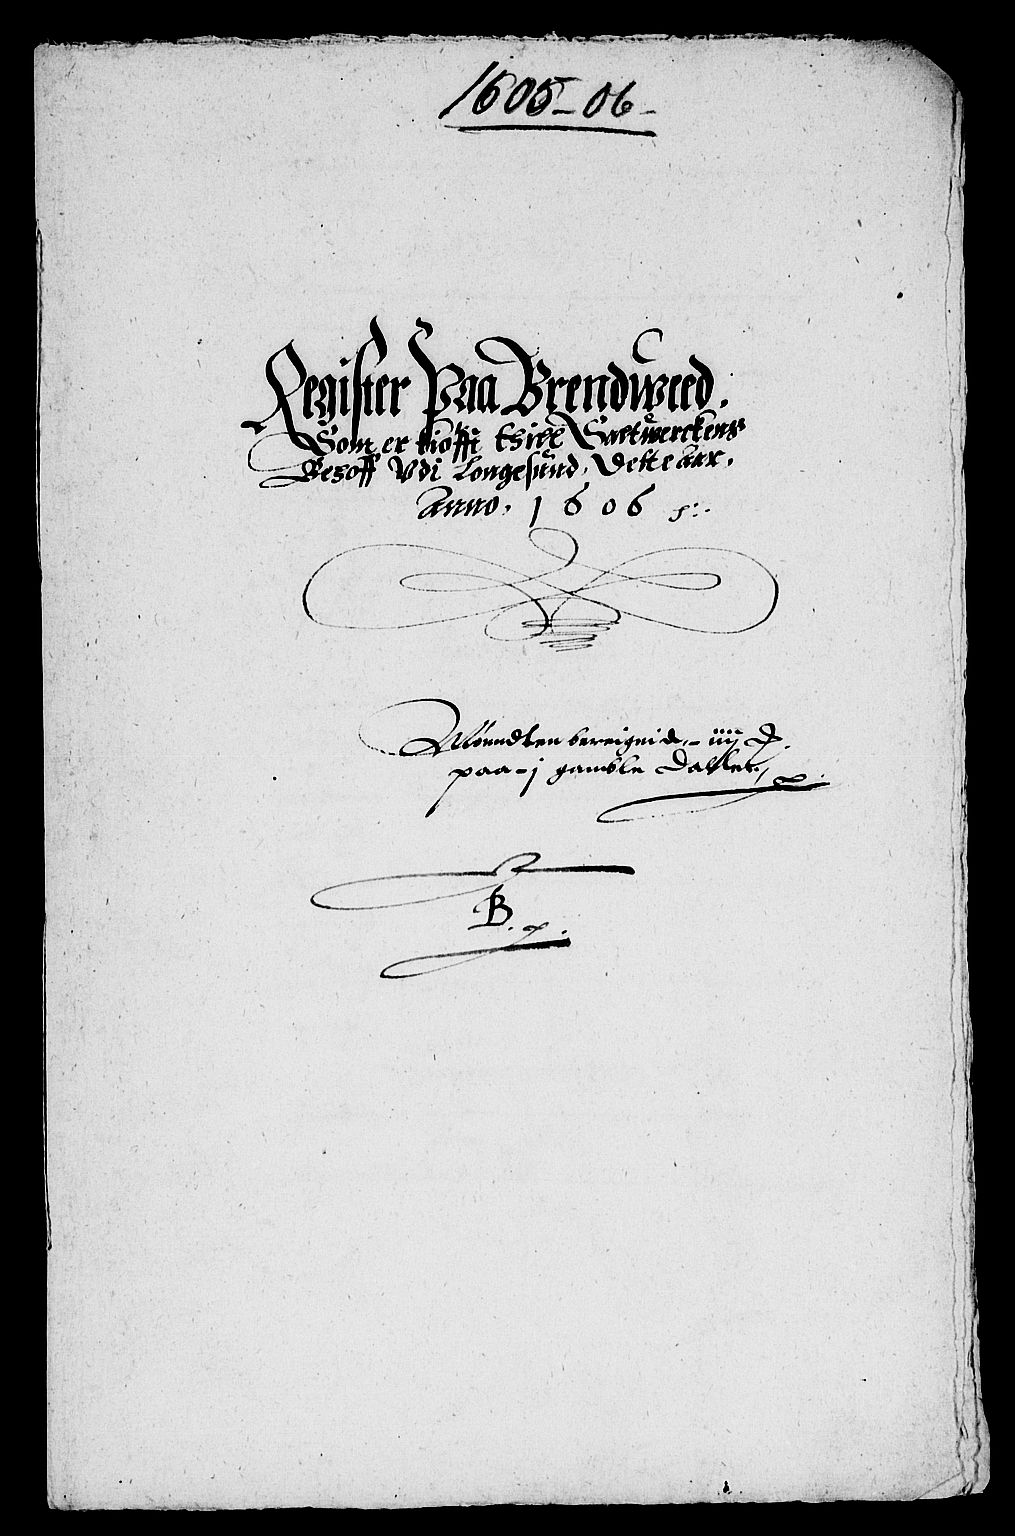 1605-06-
Register Paa Brendweed.
Som er kiøfft thill Saltwerckens
Behoff Vdi Longesund, Dette aar.
Anno. 1606
Mønndten bereignide, - iiij
paa - j gamble Daller,
B.